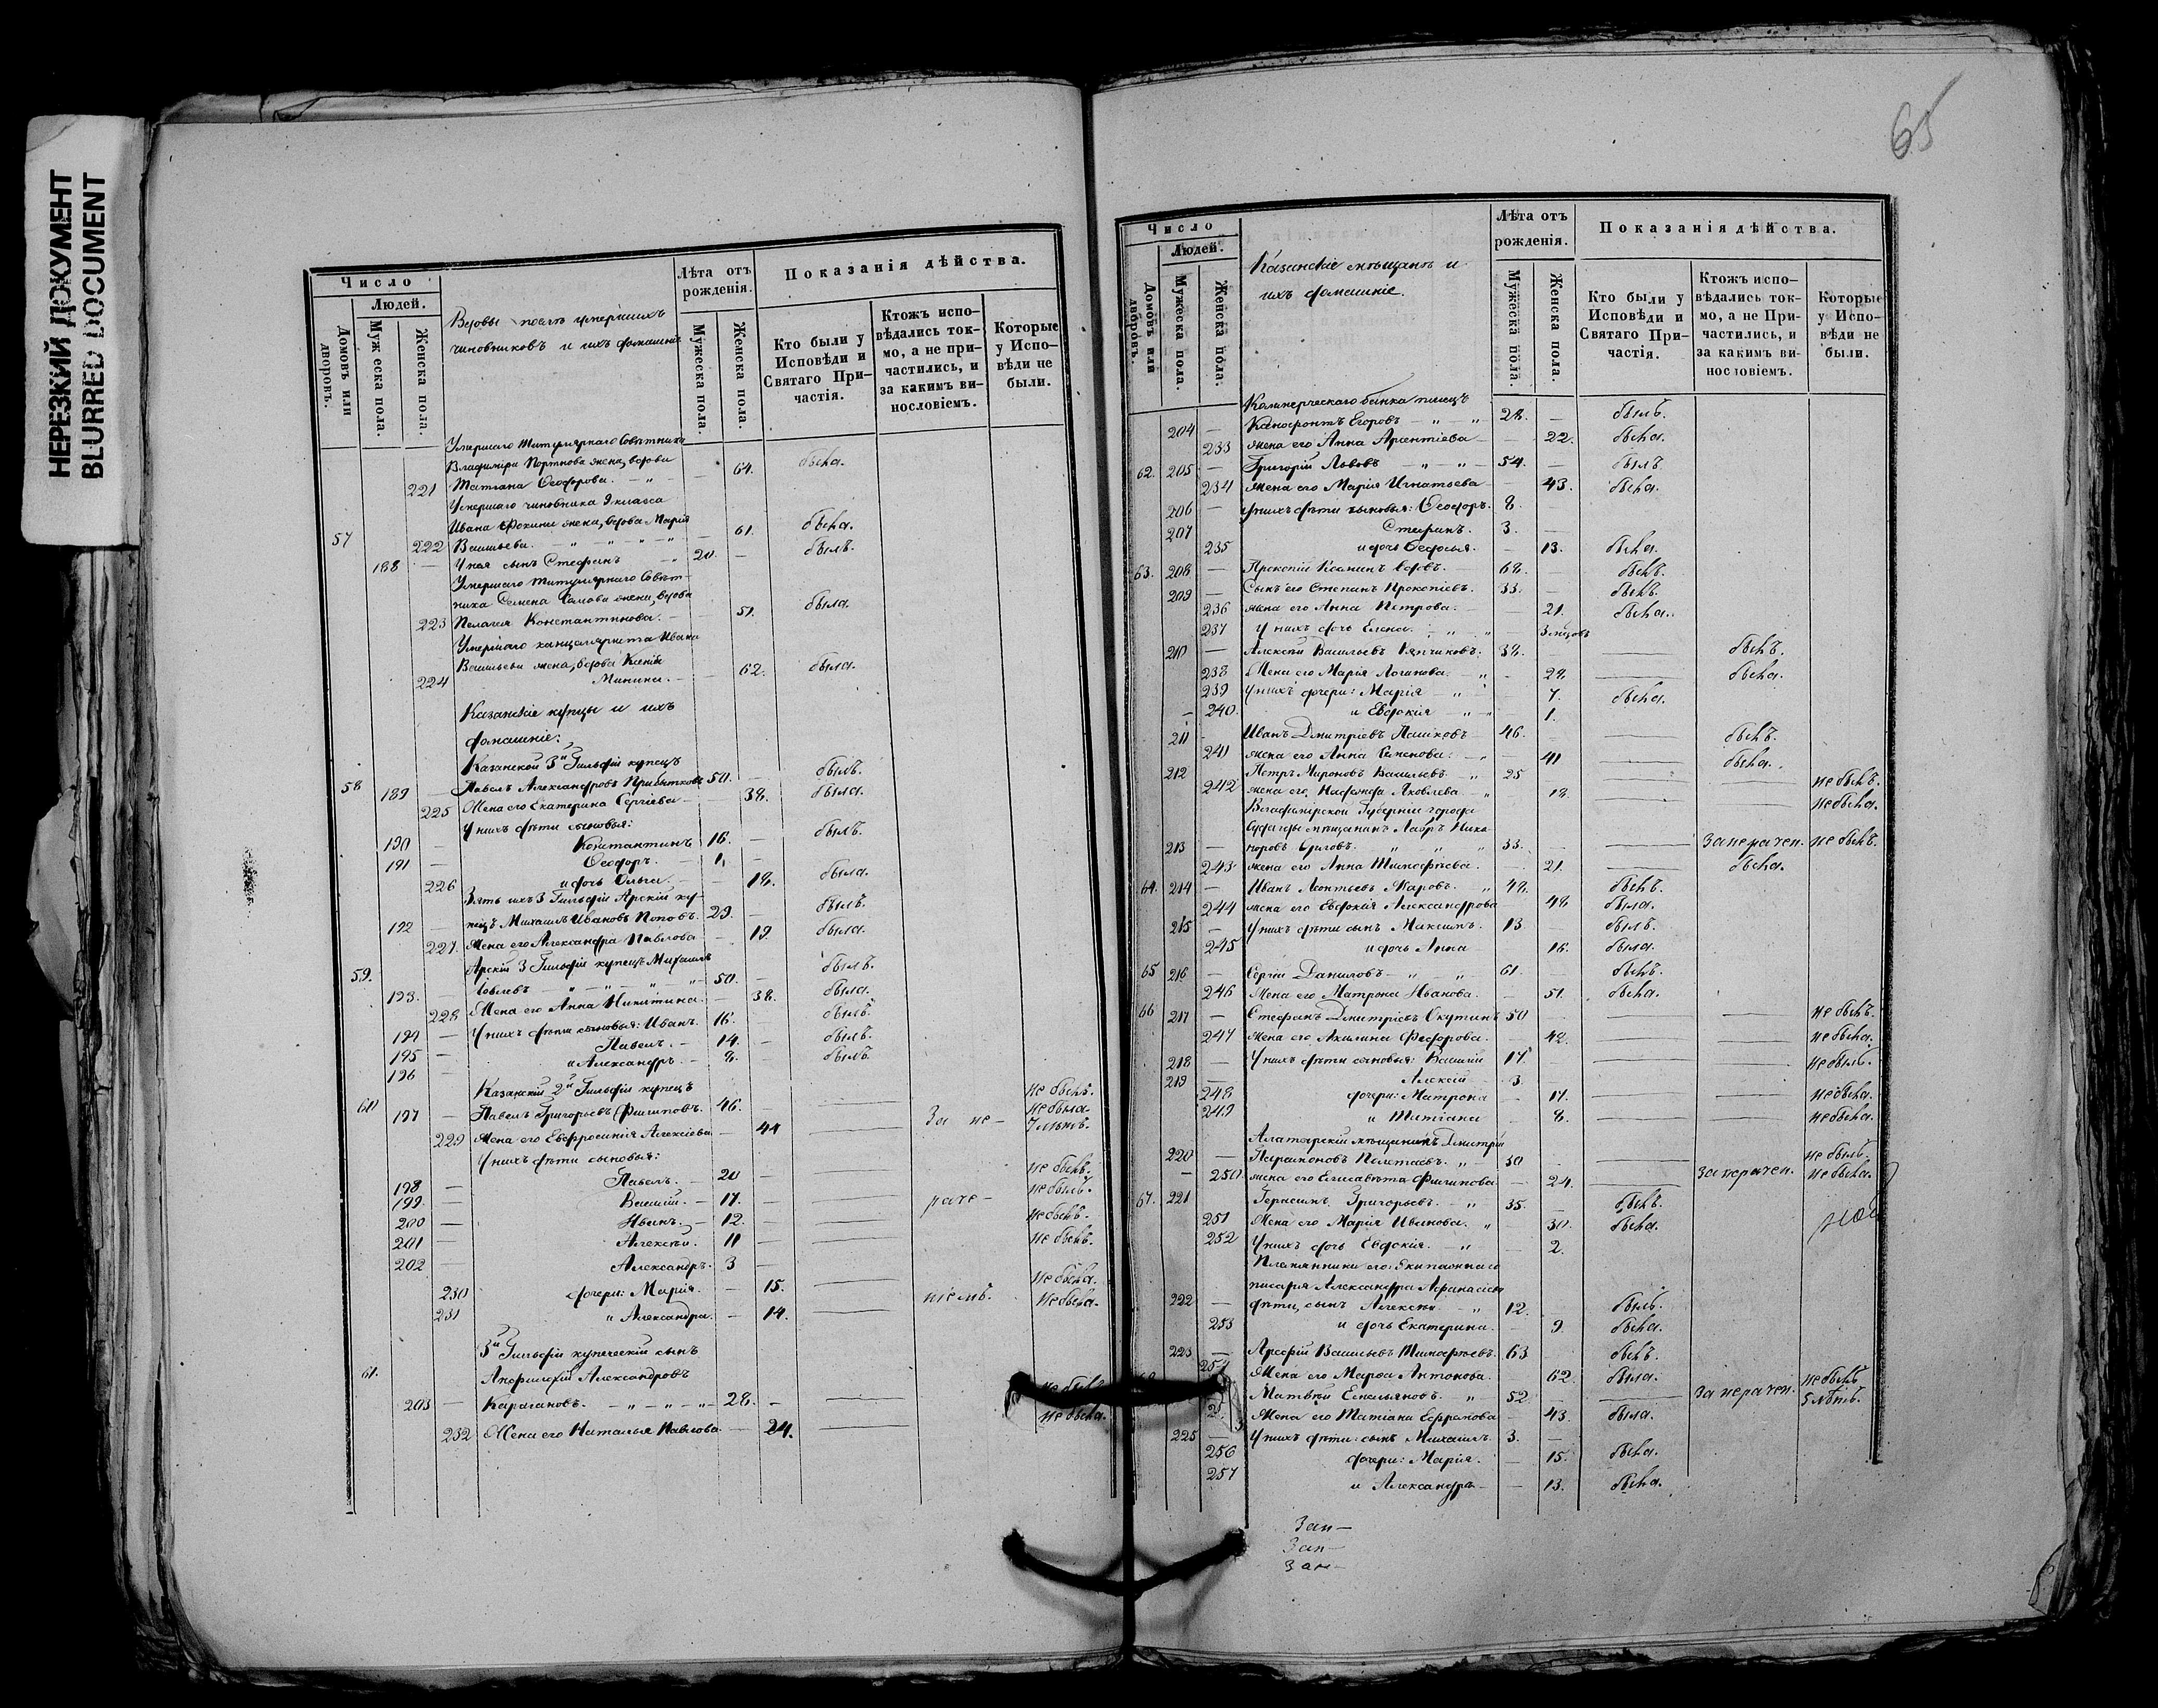 НЕРЕЗКИЙ ДОКУМЕНТ
BLURRED DOCUMENT
Число
Людей.
Домовъ или дворовъ.
Мужеска пола.
Женска пола.
Вдовы после умершихъ
чиновниковъ и ихъ домашніе
Лѣта отъ рожденія.
Мужеска пола.
Женска пола.
Показанія дѣйства.
Кто были у Исповѣди и Святаго Причастія.
Ктожъ исповѣдались токмо, а не причастились, и за какимъ винословіемъ.
Которые у Исповѣди не были.
Умершаго Титулярнаго Совѣтника
Владиміра Портнова жена, вдова
221 Татіана Ѳеодорова. — 64. была.
Умершаго чиновника 9 класса
Ивана жена, вдова Марія
57 222 Васильева. — 61. была.
188 — У нея сынъ Стефанъ 20. — былъ.
Умершаго Титулярнаго Совѣт-
ника Семена жена, вдова
223 Пелагея Константинова. — 51. была.
Умершаго канцеляриста Ивана
Васильева жена, вдова Ксенія
224 Минина. — 62. была.
Казанскіе купцы и ихъ
домашніе:
Казанской 3й Гильдіи купецъ
58 189 — Павелъ Александровъ Прибытковъ 50. — былъ.
225 Жена его Екатерина Сергіева — 38. была.
У нихъ дѣти сыновья:
190 — Константинъ 16. — былъ.
191 — Ѳеодоръ. — 1. —
226 и дочь Ольга. — 18. была.
Зять ихъ 3 Гильдіи Арскій ку-
192 — пецъ Михаилъ Ивановъ Поповъ. 29. — былъ.
227. Жена его Александра Павлова — 19. была.
59. Арскій 3 Гильдіи купецъ Михаилъ
193. — Іовлевъ 50. — былъ.
228 Жена его Анна Никитина. — 38. была.
194 — У нихъ дѣти сыновья: Иванъ. 16. былъ.
195 — Павелъ. — 14. — былъ.
196 — и Александръ. — 8. былъ.
Казанскій 2й Гильдіи купецъ
60 197 — Павелъ Григорьевъ Филиповъ. 46. — не былъ.
229 Жена его Евфросинія Алексіева — 44 За не- не была.
У нихъ дѣти сыновья: 7 лѣтъ.
198 — Павелъ. — 20 — не былъ.
199. — Василій. — 17. — раче- не былъ.
200 — Иванъ. — 12. — не былъ.
201 — Алексѣй. 11 — не былъ.
202 — Александръ. 3 —
230 дочери: Марія. — 15. не была.
231 и Александра. — 14. ніемъ. не была.
3й Гильдіи купеческій сынъ
61. Александровъ
203 — Каратановъ. 28. — не былъ
232 Жена его Наталья Павлова — 24. не была.
65
Число
Людей.
Домовъ или дворовъ.
Мужеска пола.
Женска пола.
Казанскіе мѣщане и
ихъ домашніе.
Лѣта отъ рожденія.
Мужеска пола.
Женска пола.
Показанія дѣйства.
Кто были у Исповѣди и Святаго Причастія.
Ктожъ исповѣдались токмо, а не Причастились, и за какимъ винословіемъ.
Которые у Исповѣди не были.
Коммерческаго банка писецъ
204 — Егоровъ — 28. — былъ.
233 жена его Анна Арсентіева — 22. была.
62. 205 — Григорій Львовъ 54. — былъ.
234 жена его Марія Игнатьева — 43. была.
206 — у нихъ дѣти сыновья: Ѳеодоръ. 8. —
207 Стефанъ. 3. —
235 и дочь Ѳедосья. — 13. была.
63. 208 — Прокопій вдовъ. 68. — былъ.
209 — Сынъ его Степанъ Прокопіевъ. 33. — былъ.
236 жена его Анна Петрова. 21. была.
237 У нихъ дочь Елена. — 3 мѣсяцовъ
210 — Алексѣй Васильевъ 38. былъ.
238 Жена его Марія Логинова. — 28. была.
239 у нихъ дочери: Марія — 7. была.
240. и Евдокія — 1.
211 — Иванъ Дмитріевъ Пашковъ 46. былъ.
241 жена его Анна Семенова. — 41 была.
212 Петръ Мироновъ Васильевъ. 25 не былъ.
242 жена его Надежда Яковлева 18. не была.
Владимірской Губерніи города
Суздаля мѣщанинъ Лавръ Ника-
213 — норовъ 33. — за нерачен. не былъ.
243 жена его Анна Тимофѣева. 21. была.
64. 214 — Иванъ Леонтьевъ Жаровъ. 48. былъ.
244 жена его Евдокія Александрова 48 была.
215 — У нихъ дѣти сынъ Максимъ. 13. былъ.
245 и дочь Анна 16. была.
65 216 — Сергій Даниловъ 61. — былъ.
246 Жена его Матрона Иванова. — 51. была.
66 217 — Стефанъ Дмитріевъ 50 не былъ.
247 жена его Акилина Ѳеодорова. — 42. не была.
218 — У нихъ дѣти сыновья: Василій 17. не былъ.
219 — Алексій 3.
248 дочери: Матрона — 17. не была.
249 и Татіана 8. не была.
Алатырскій мѣщанинъ Дмитрій
220 — Парамоновъ 30 не былъ.
250. жена его Елисавета Филипова — 24. за нерачен. не была.
67. 221 Герасимъ Григорьевъ 35. былъ.
251 Жена его Марія Иванова. — 30. была.
252 У нихъ дочь Евдокія. — 2.
Племянники его: Экипажнаго
писаря Александра Афанасіева
222 — дѣти, сынъ Алексѣй 12. былъ.
253 и дочь Екатерина. — 9. была.
223 — Васильевъ Тимофѣевъ. 63 былъ.
254 Жена его Марѳа Антонова. 62. была.
Матвѣй Емельяновъ. 52. за нерачен. не былъ
5 лѣтъ.
Жена его Татіана Ефремова — 43. была.
225 — У нихъ дѣти: сынъ Михаилъ. 3. —
256 дочери: Марія. — 15. была.
257 и Александра — 13. была.
Зап—
Зап—
Зап—